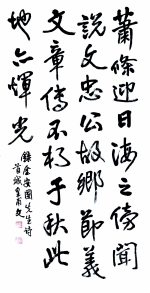 蕭條迎日海之傍聞
說文忠公故鄉節義
文章傳不朽千秋此
地亦輝光
錄金安國先生詩